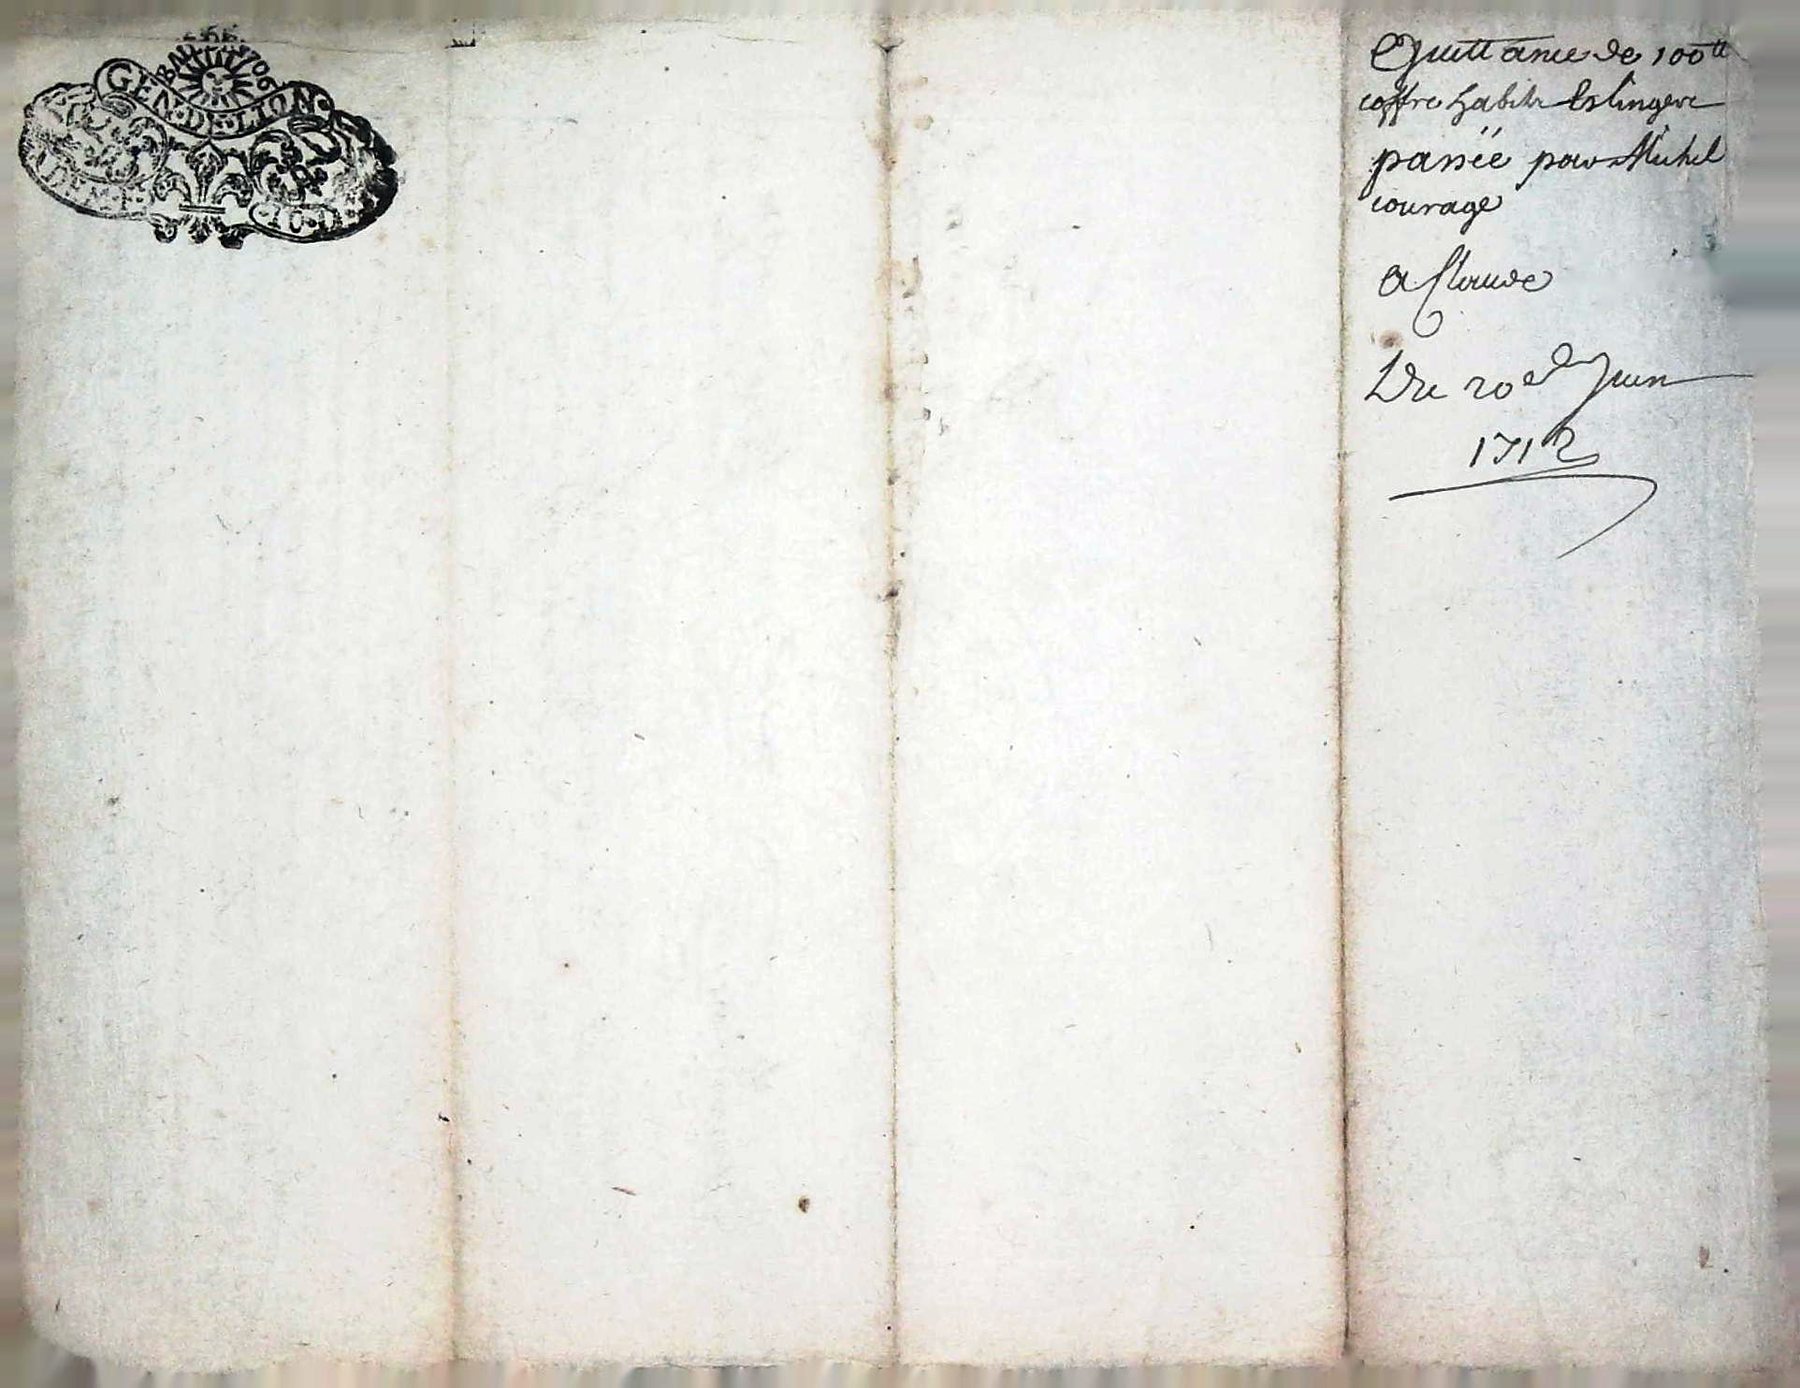 GEN·DE·LION·
1706
·10·D·
Quittance de 100tt
coffre habitz & lingere
passée par Michel
courage
a Claude
Du 20e Juin
1712